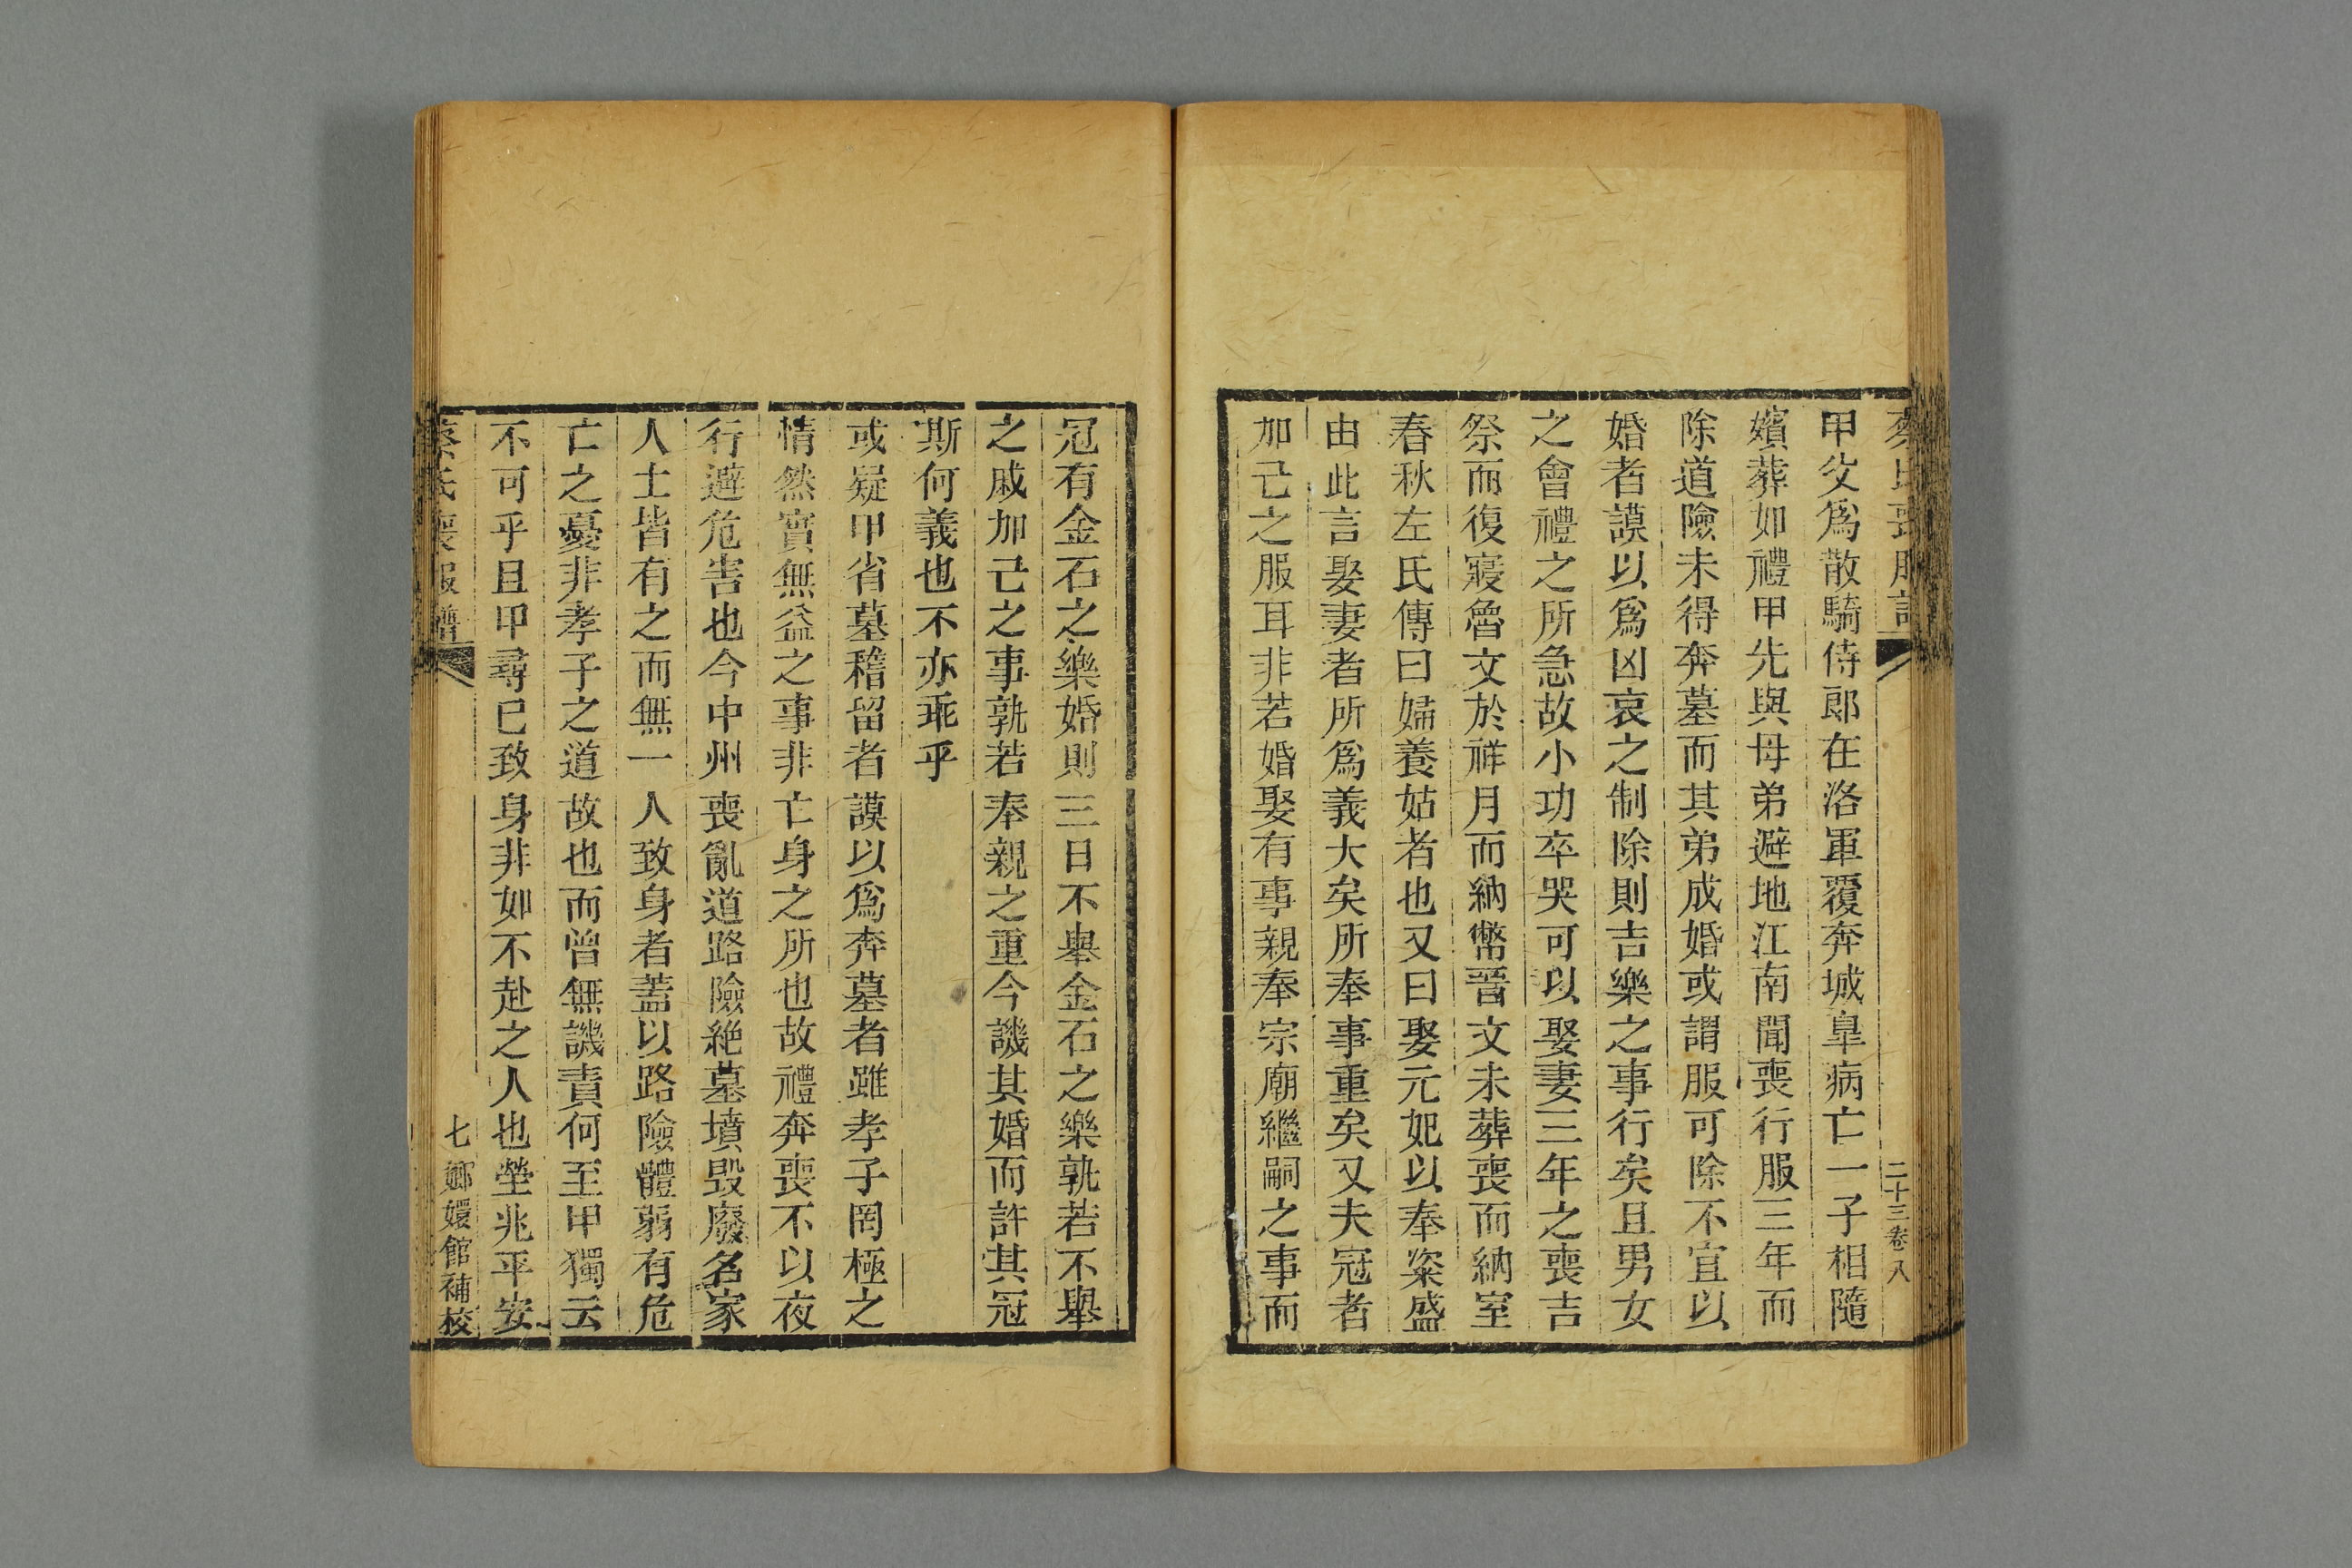 甲父爲散騎侍郎在洛軍覆奔城臯病亡一子相隨
嬪葬如禮甲先與母弟避地江南聞喪行服三年而
除道險未得奔墓而其弟成婚或謂服可除不宜以
婚者謨以爲凶哀之制除則吉樂之事行矣且男女
之會禮之所急故小功卒哭可以娶妻三年之喪吉
祭而復寢魯文於祥月而納幣晉文未葬喪而納室
春秋左氏傳曰婦養姑者也又曰娶元妃以奉粢盛
由此言娶妻者所爲義大矣所奉事重矣又夫冠者
加己之服耳非若婚娶有事親奉宗廟繼嗣之事而
二十三卷八
冠有金石之樂婚則三日不舉金石之樂孰若不舉
之戚加己之事孰若奉親之重今譏其婚而許其冠
斯何義也不亦乖乎
或疑甲省墓稽留者謨以爲奔墓者雖孝子罔極之
情然實無益之事非亡身之所也故禮奔喪不以夜
行避危害也今中州喪亂道路險絶墓墳毀廢名家
人士皆有之而無一人致身者蓋以路險體弱有危
亡之憂非孝子之道故也而曾無譏責何至甲獨云
不可乎且甲尋已致身非如不赴之人也塋兆平安
蔡氏喪服譜
七
嫏嬛館補校